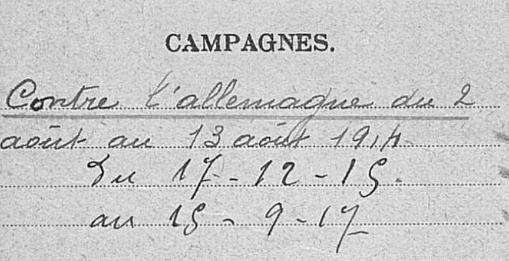 CAMPAGNES.
Contre l'allemagne du 2
août au 13 août 1914.
Du 17-12-15.
au 15-9-17